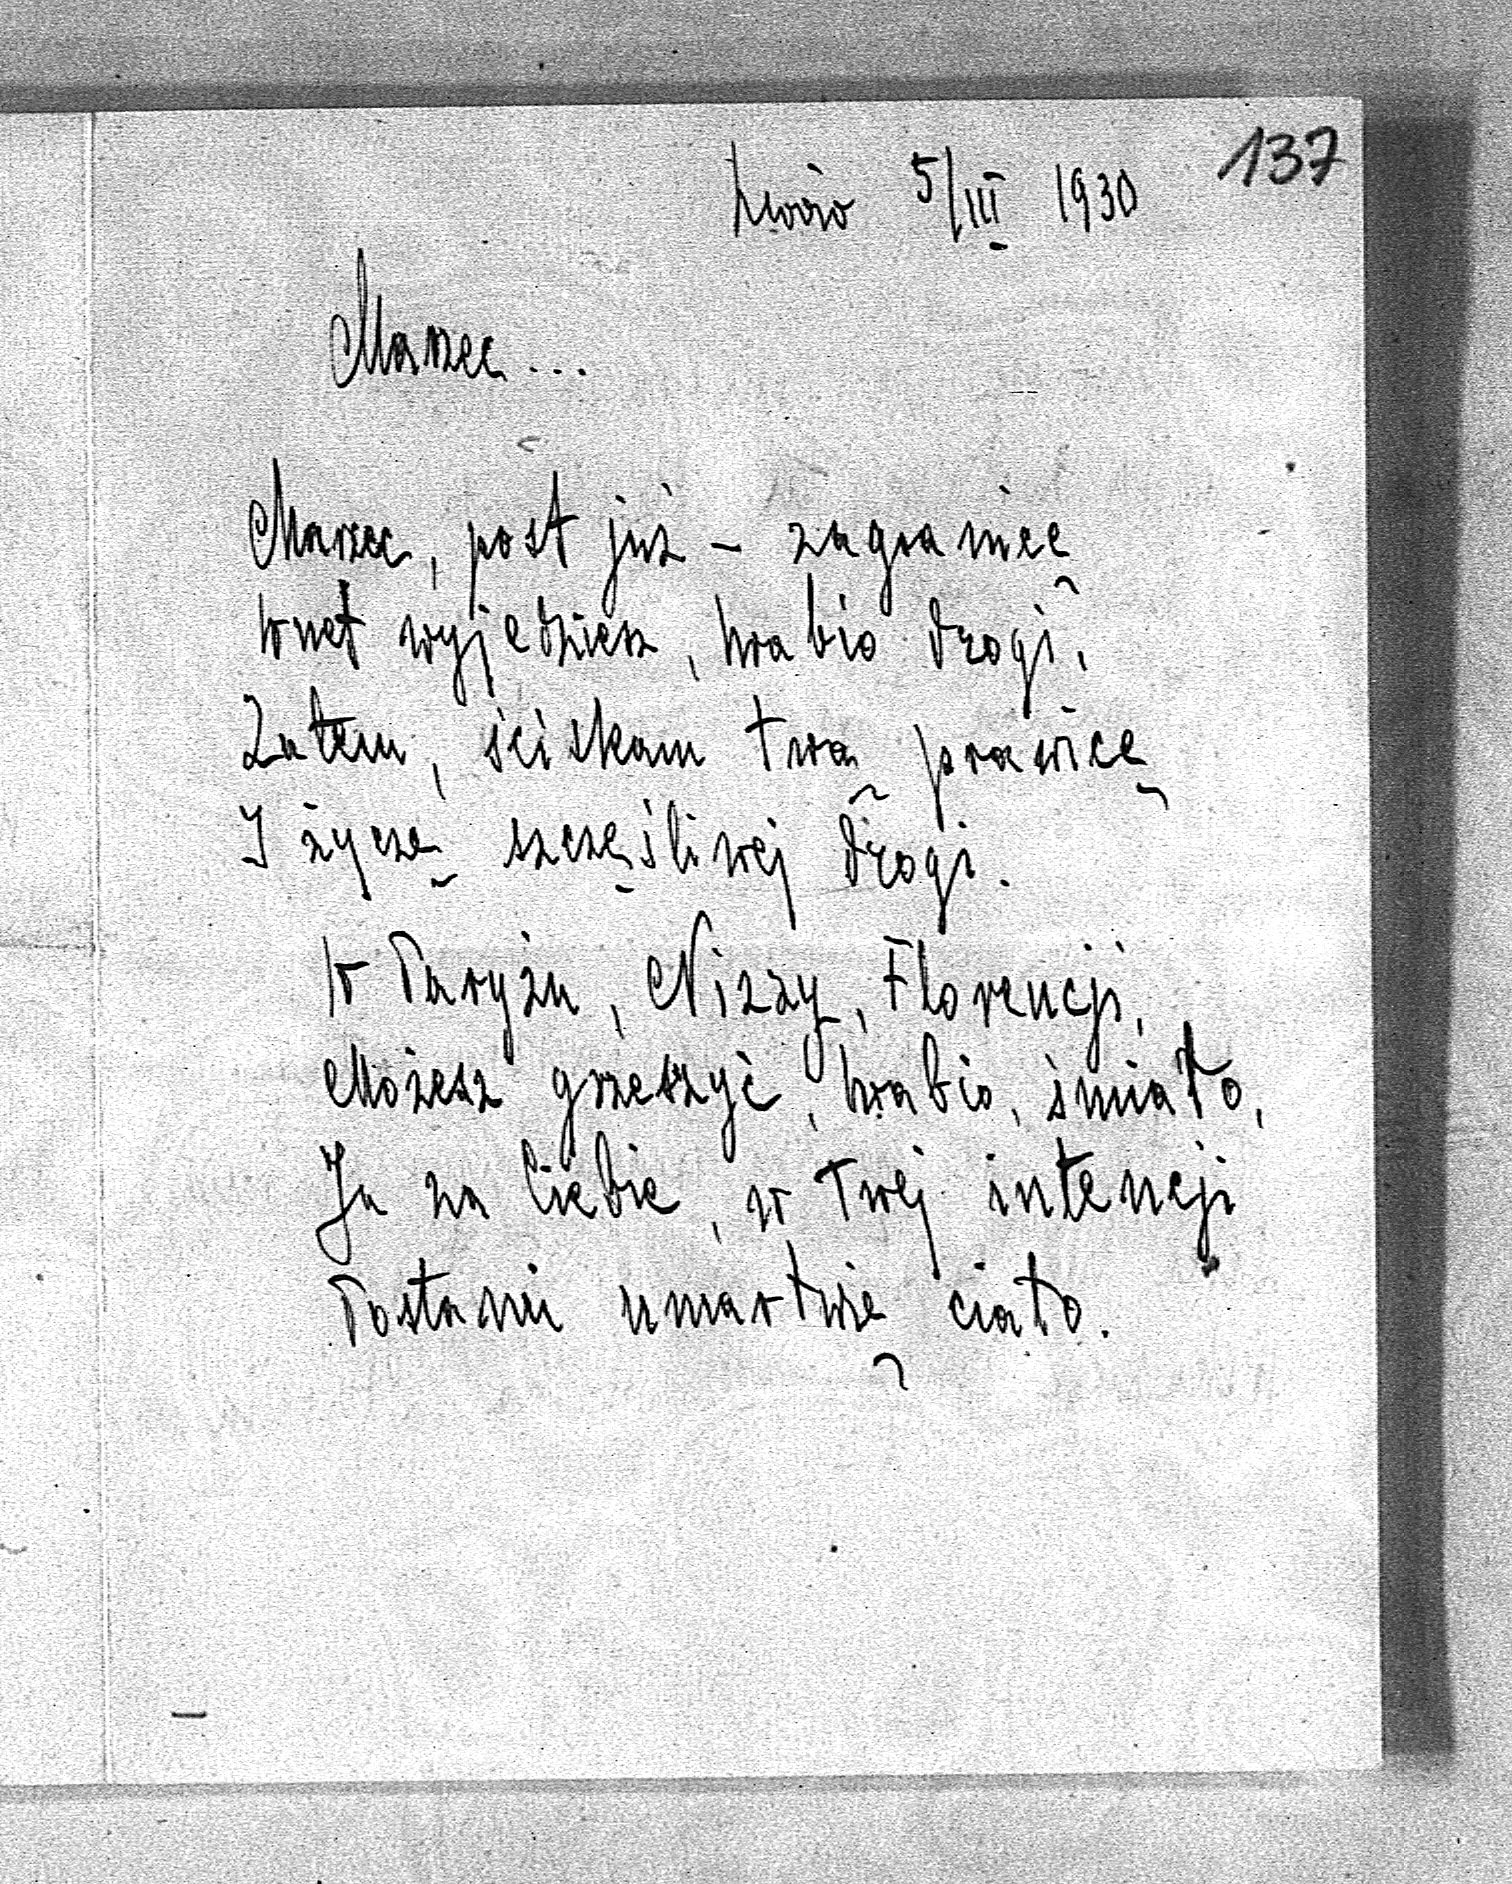 137
Lwów 5/III 1930
Marzec...
Marzec, post już – zagranicę
Wnet wyjedziesz, hrabio drogi,
Zatem, ściskam twą prawicę
I życzę szczęśliwej drogi.
W Paryżu, Nizzy, Florencji,
Możesz grzeszyć, hrabio, śmiało,
Ja za Ciebie, w twej intencji
Postami umartwię ciało.